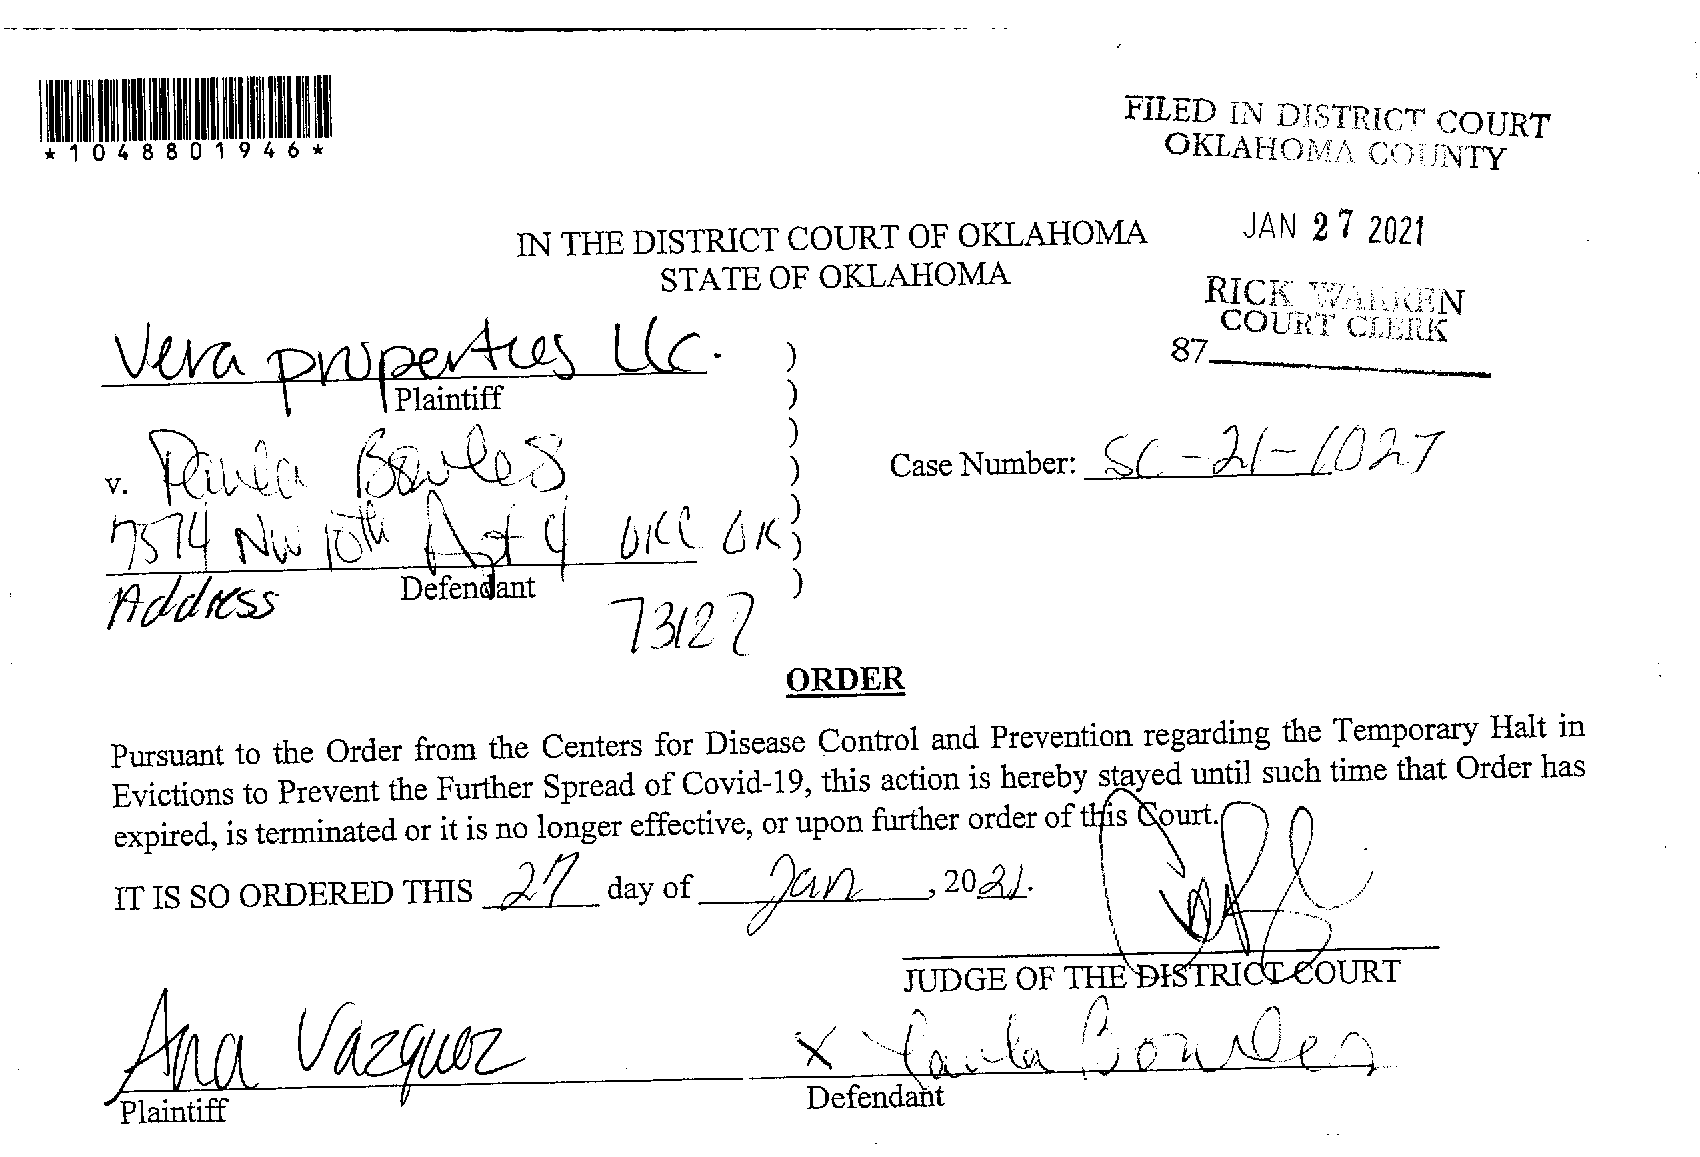 *1048801946*
FILED IN DISTRICT COURT
OKLAHOMA COUNTY
JAN 27 2021
RICK WARREN
COURT CLERK
87
IN THE DISTRICT COURT OF OKLAHOMA
STATE OF OKLAHOMA
Vera properties LLC.
Plaintiff
)
)
)
)
)
)
)
v. Paula Bowles
7574 NW 10th Apt 4 OKC OK
Address Defendant
73127
Case Number: SC-21-1027
ORDER
Pursuant to the Order from the Centers for Disease Control and Prevention regarding the Temporary Halt in
Evictions to Prevent the Further Spread of Covid-19, this action is hereby stayed until such time that Order has
expired, is terminated or it is no longer effective, or upon further order of this Court.
IT IS SO ORDERED THIS 27 day of Jan, 2021.
JUDGE OF THE DISTRICT COURT
Ana Vazquez
Plaintiff
X Paula Bowles
Defendant